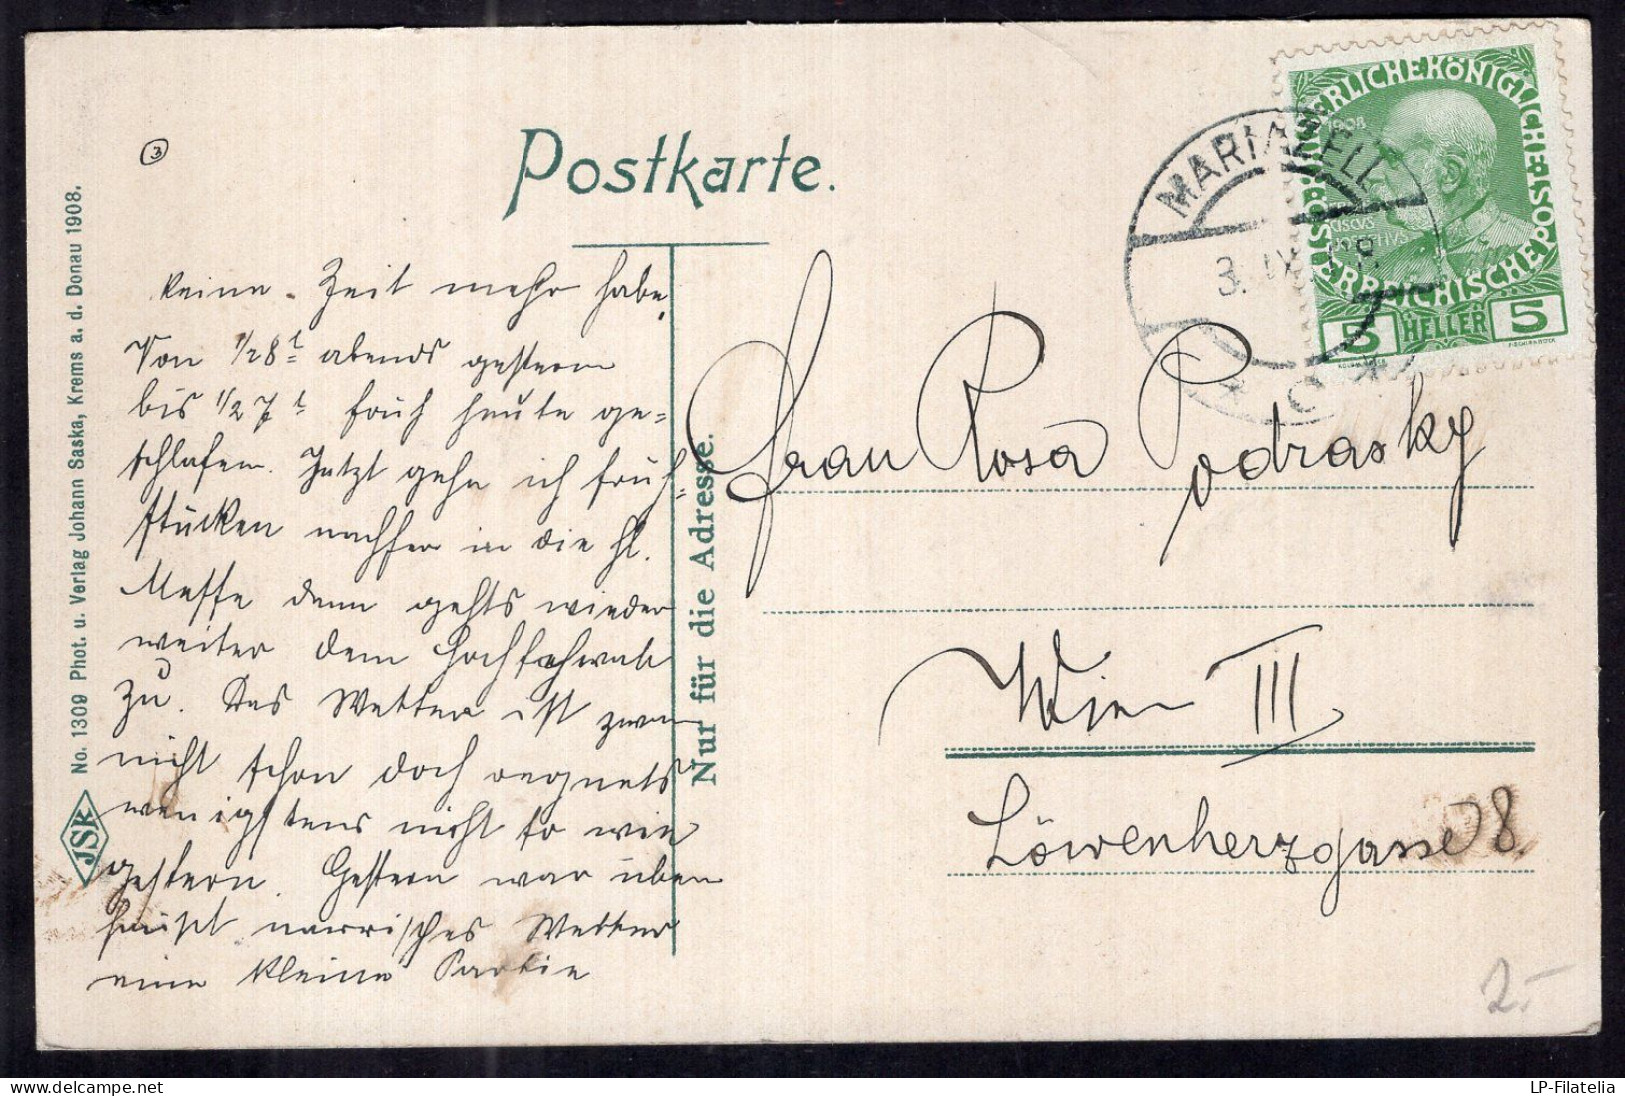 3
Postkarte.
keine Zeit mehr habe.
Von 1/2 8 t abends gestern
bis 1/2 7 t früh heute ge=
schlafen. Jetzt gehe ich früh=
stücken nachher in die hl.
Messe dann gehts wieder
weiter dem Hochschwab
zu. Das Wetter ist zwar
nicht schon doch regnets
wenigstens nicht so wie
gestern. Gestern war über
haupt narrisches Wetter
eine kleine Partie
No. 1309 Phot. u. Verlag Johann Saska, Krems a. d. Donau 1908.
JSK
Nur für die Adresse.
MARIAZELL
3. IX 08
* C *
KAISERLICHEKÖNIGLICHE POST
ÖSTERREICHISCHE
1908
5 HELLER 5
Frau Rosa Podrasky
Wien III
Löwenherzgasse 8.
2.-
LP-Filatelia